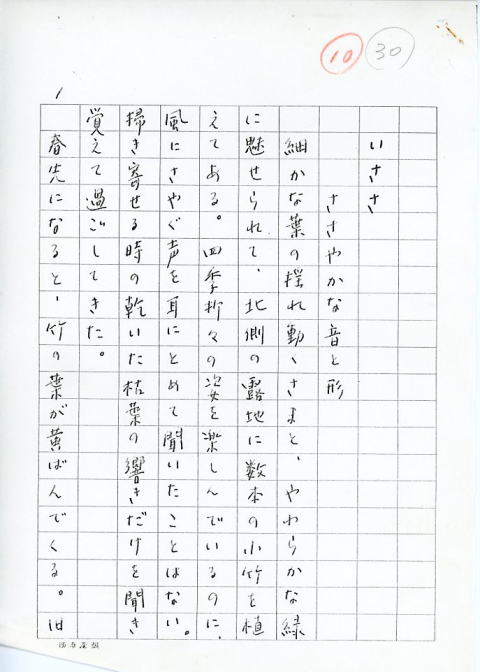 10
30
1
いささ
ささやかな音と形
細かな葉の揺れ動くさまと、やわらかな緑
に魅せられて、北側の露地に数本の小竹を植
えてある。四季折々の姿を楽しんでいるのに、
風にさやぐ声を耳にとめて聞いたことはない。
掃き寄せる時の乾いた枯葉の響きだけを聞き
覚えて過ごしてきた。
春先になると、竹の葉が黄ばんでくる。旧